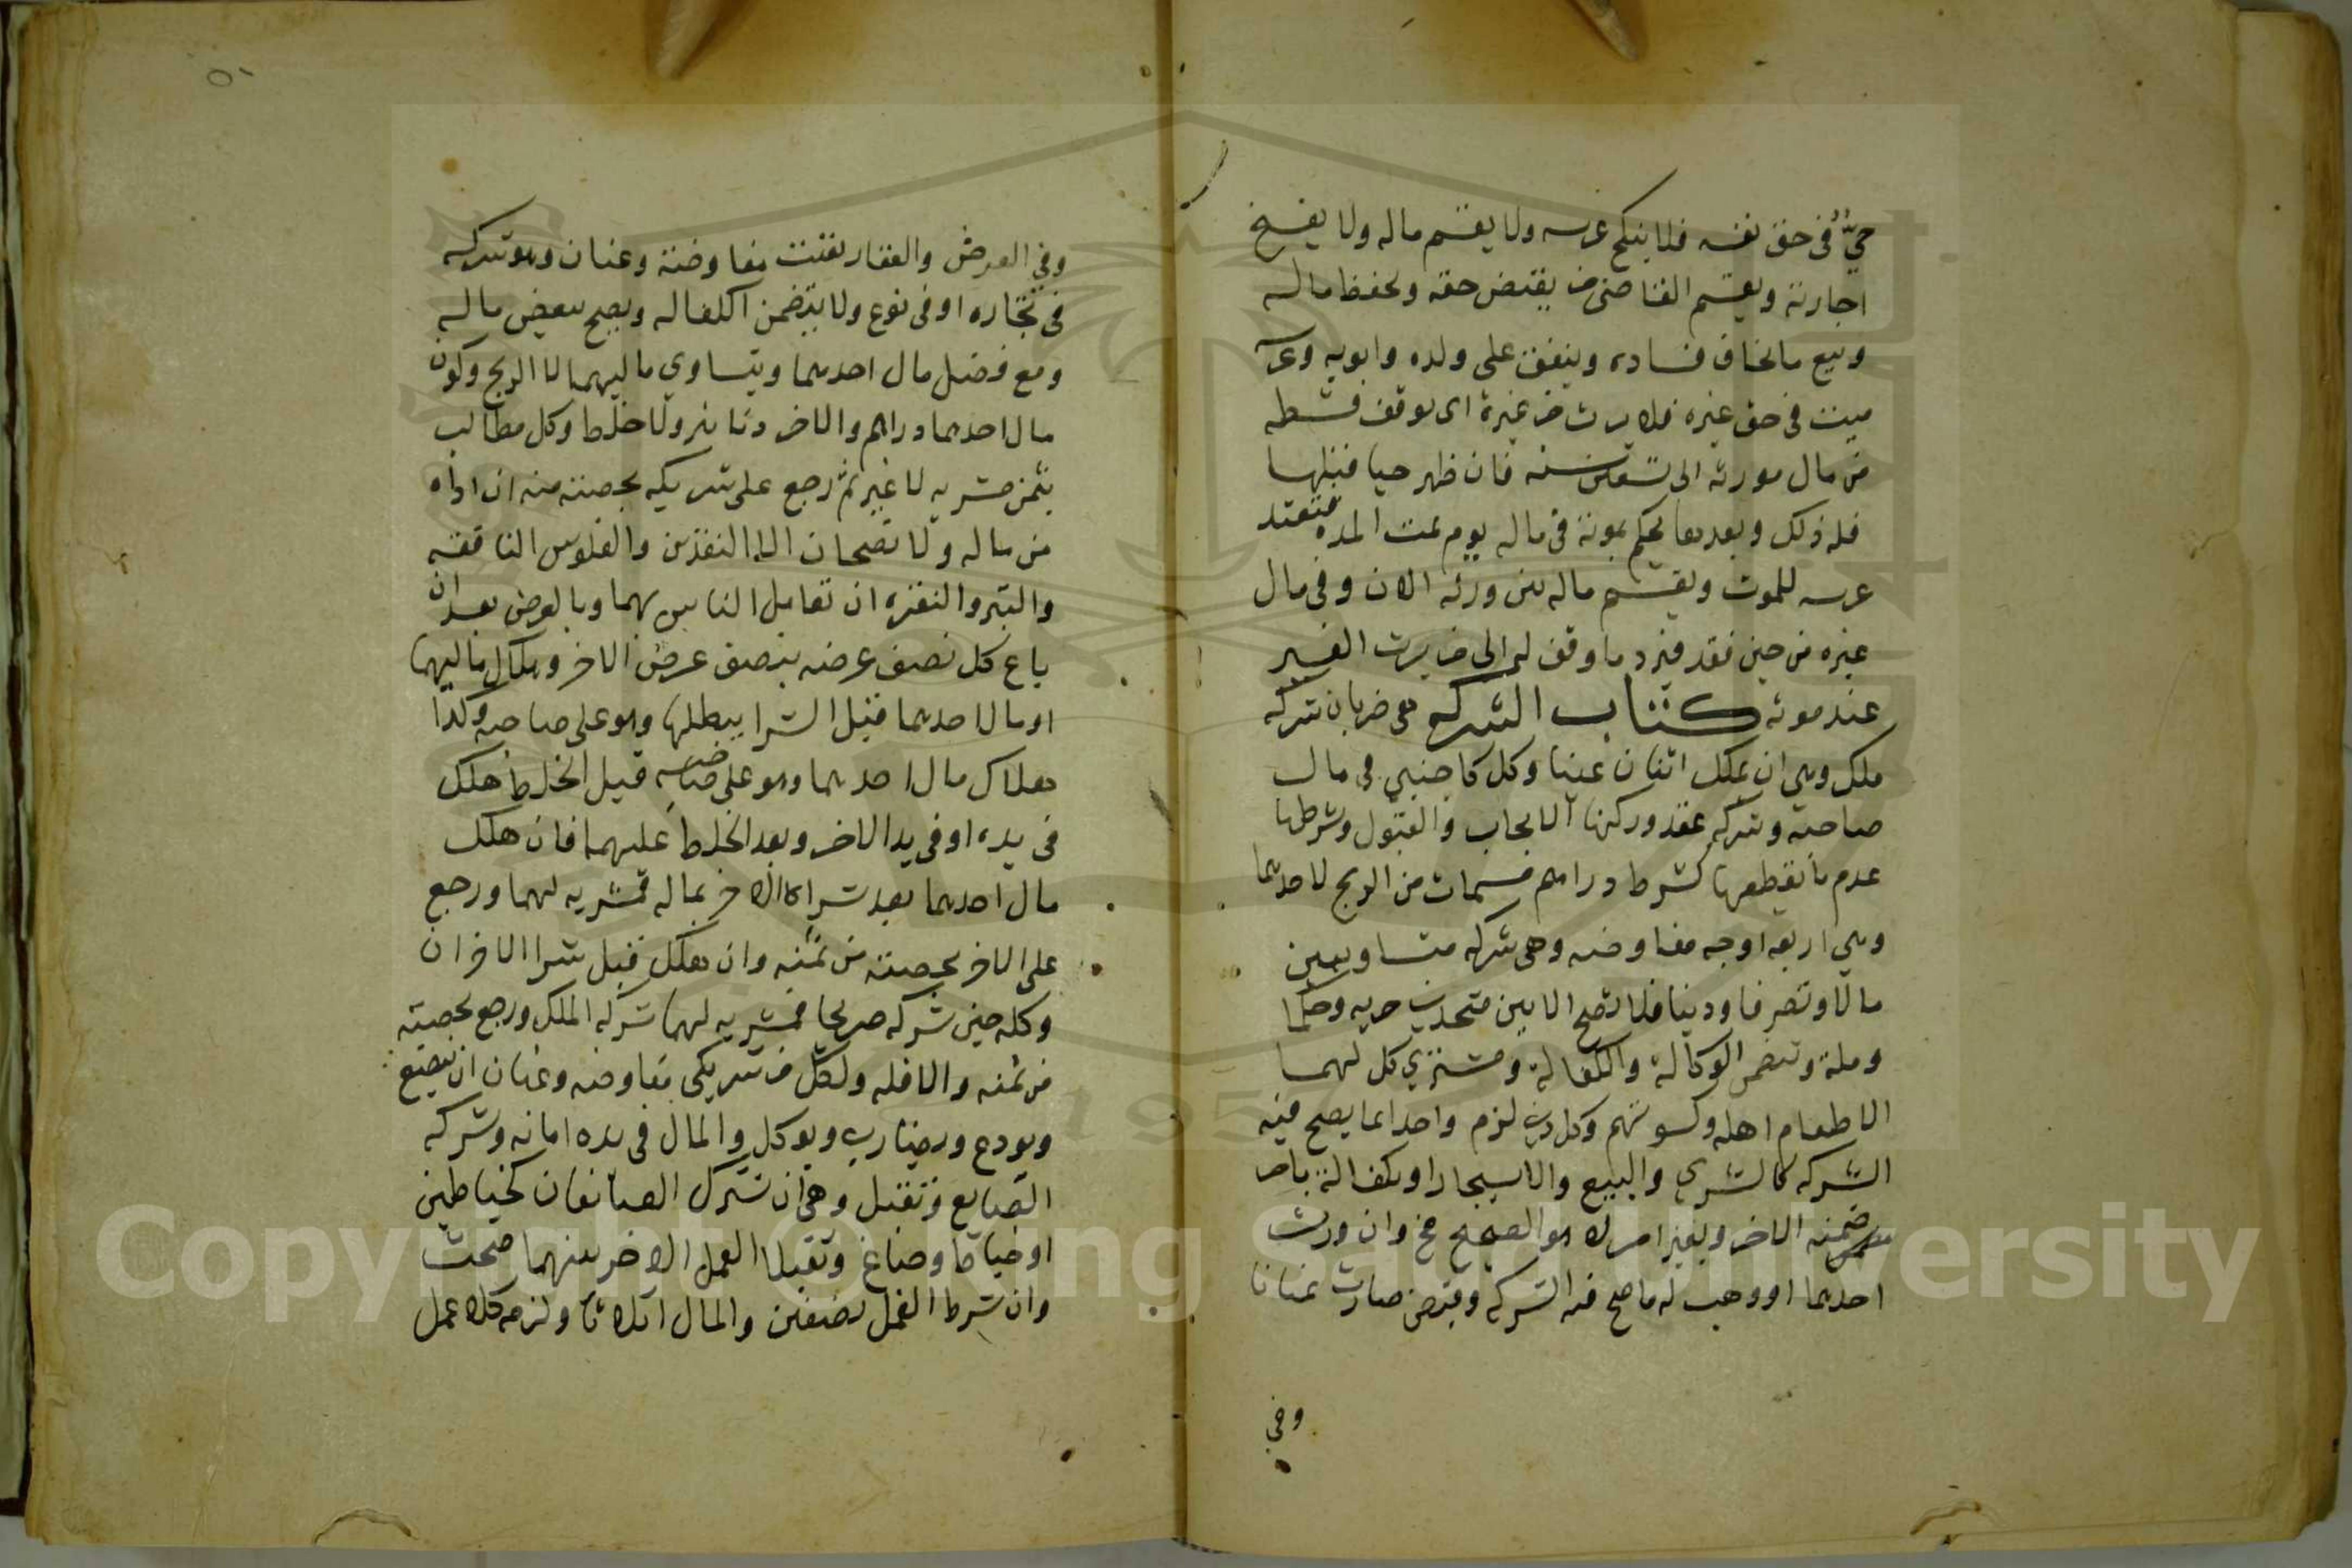 حيٌّ فى حق نفسه فلا ينكح عرسه ولا يقسم ماله ولا يفسخ
اجارته ويقيم القاضى من يقبض حقه ويحفظ ماله
وبيع ما يخاف فساده وينفق على ولده وابويه وعرسه
ميت فى حق غيره فلا يرث من غيره اى يوقف قسطه
من مال مورثه الى تسعين سنه فان ظهر حيا قبلها
فله ذلك وبعدها يحكم بموته فى ماله يوم تمت المده فتعتد
عرسه للموت ويقسم ماله بين ورثه الان وفى مال
غيره من حين فقد فيرد ما وقف له الى من يرث الغير
عند موته كتاب الشركه هى ضربان شركه
ملك وهي ان يملك اثنان عينا وكل كاجنبي فى مال
صاحبه وشركه عقد وركنها الايجاب والقبول وشرطها
عدم ما يقطعها كشرط دراهم مسمات من الربح لاحدهما
وهي اربعه اوجه مفاوضه وهى شركه متساويين
مالا وتصرفا ودينا فلا تصح الا بين متحدين حريه وحلما
وملة وتتضمن الوكالة والكفالة ومشتري كل لهما
الا طعام اهله وكسوتهم وكل دين لزم واحدا بما يصح فيه
الشركه كالشرى والبيع والاستيجار او بكفالة بامر
ضمنه الاخر وبغير امر لا هو الصحيح وان ورث
احدهما او وهب له ما صح فيه الشركه وقبض صارت عنانا
وفي
٥١
وفي العرض والعقار بقيت مفاوضة وعنان وهو شركه
فى تجاره او فى نوع ولا يتضمن الكفاله ويصح ببعض ماله
ومع فضل مال احدهما وتساوي ماليهما لا الربح وكون
مال احدهما دراهم والاخر دنانير ولا خلط وكل مطالب
بثمن مشريه لا غير ثم رجع على شريكه بحصته منه ان اداه
من ماله ولا تصحان الا بالنقدين والفلوس النافقه
والتبر والنقره ان تعامل الناس بهما وبالعرض بعد ان
باع كل نصف عرضه بنصف عرض الاخر وهلاك ماليهما
او مال احدهما قبل الشرا يبطلها وهو على صاحبه وكذا
هلاك مال احدهما وهو على صاحبه قبل الخلط هلك
فى يده او فى يد الاخر وبعد الخلط عليهما فان هلك
مال احدهما بعد شراء الاخر بماله فمشريه لهما ورجع
على الاخر بحصته من ثمنه وان هلك قبل شرا الاخر ان
وكله حين شركه صريحا فمشريه لهما شركه الملك ورجع بحصته
من ثمنه والا فله ولكل من شريكي مفاوضه وعنان ان يبضع
ويودع ويضارب ويوكل والمال فى يده امانه وشركه
الصنايع وتقبل وهى ان يشترك الصانعان كخياطين
او خياط وصباغ وتقبلا العمل الاخر بينهما صحت
وان شرط العمل نصفين والمال اثلاثا ولزم كلا عمل
Copyright © King Saud University
1957